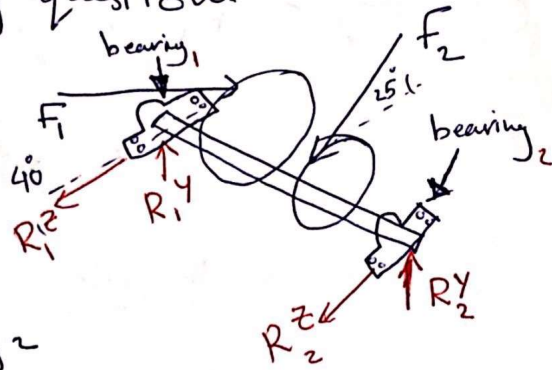 bearing₁
F₂
F₁
25°
bearing₂
40
R₁ᶻ
R₁ʸ
R₂ʸ
R₂ᶻ
2